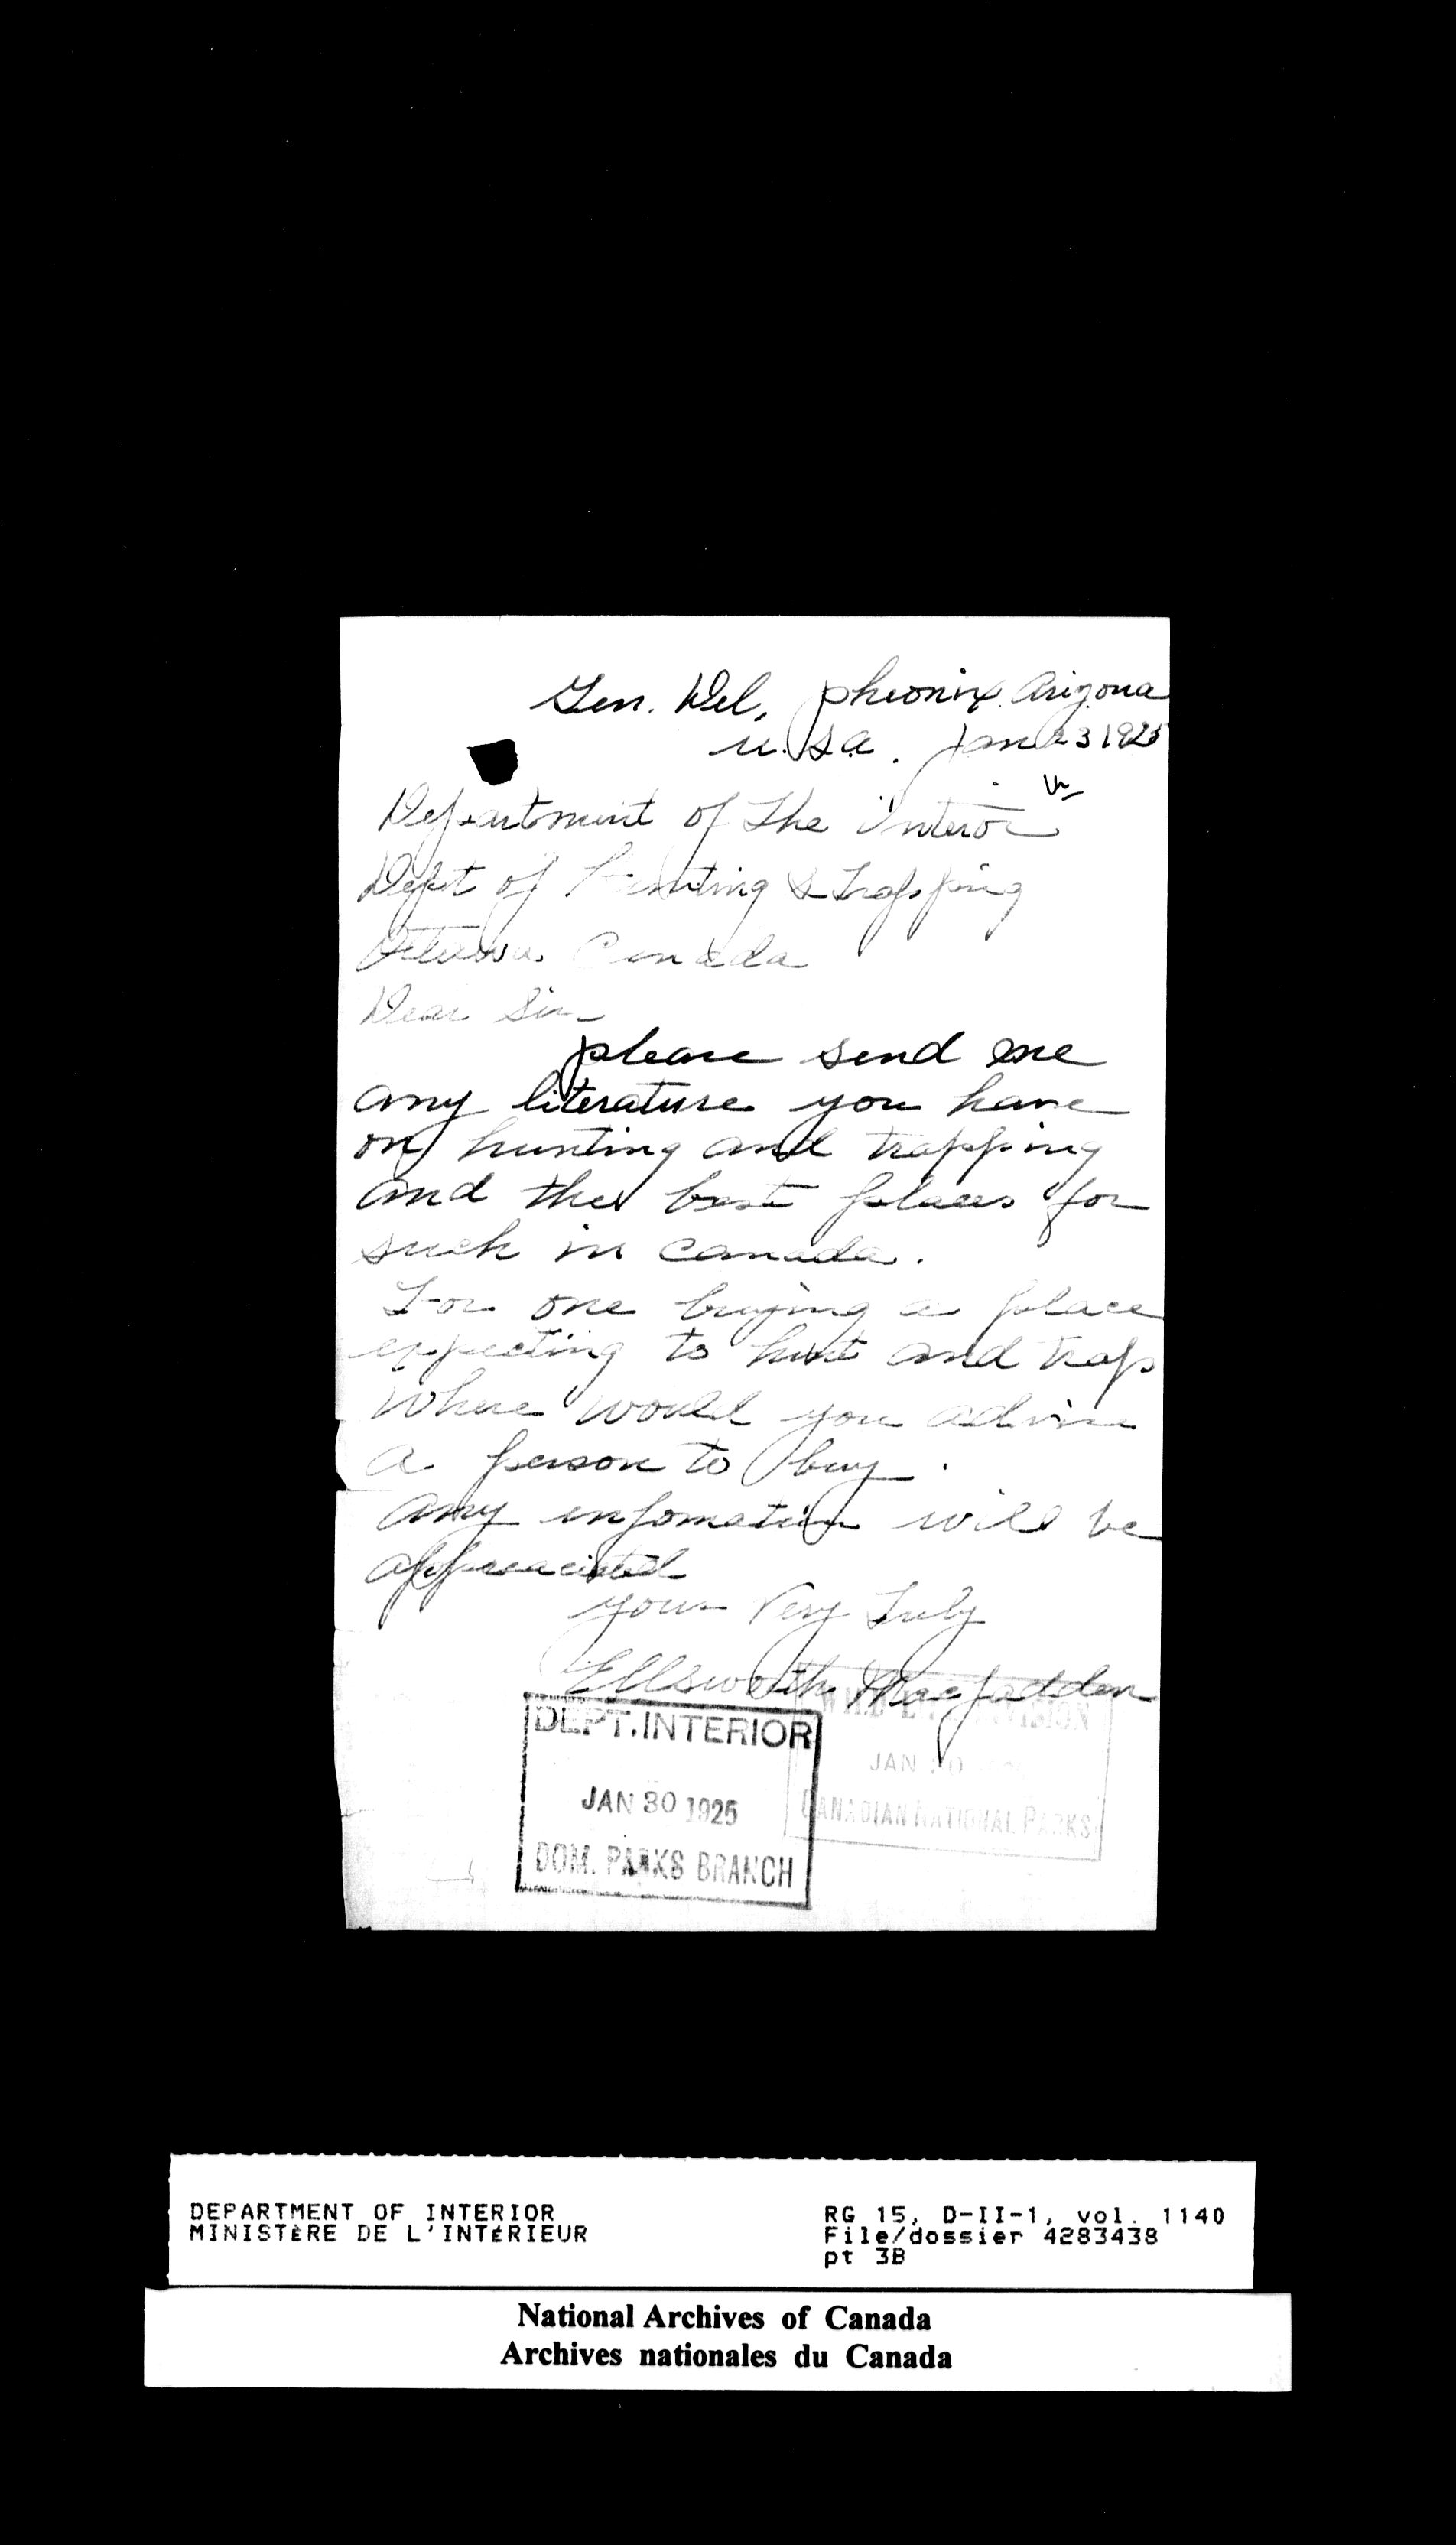 Gen. Del, pheonix. Arizona
U.S.A. Jan 23 1925
Department of The Interor
Dept of Hunting & Trapping
Ottawa Canada
Dear Sir
please send me
any literature you have
on hunting and trapping
and the best places for
such in Canada.
For one buying a place
expecting to hunt and trap
where would you advise
a person to buy.
any infomation will be
appreaciated
yours Very Truly
Ellsworth Macfadden
WILD LIFE DIVISION
JAN 30
CANADIAN NATIONAL PARKS
DEPT. INTERIOR
JAN 30 1925
DOM. PARKS BRANCH
DEPARTMENT OF INTERIOR
MINISTÈRE DE L'INTÉRIEUR
RG 15, D-II-1, vol. 1140
File/dossier 4283438
pt 3B
National Archives of Canada
Archives nationales du Canada